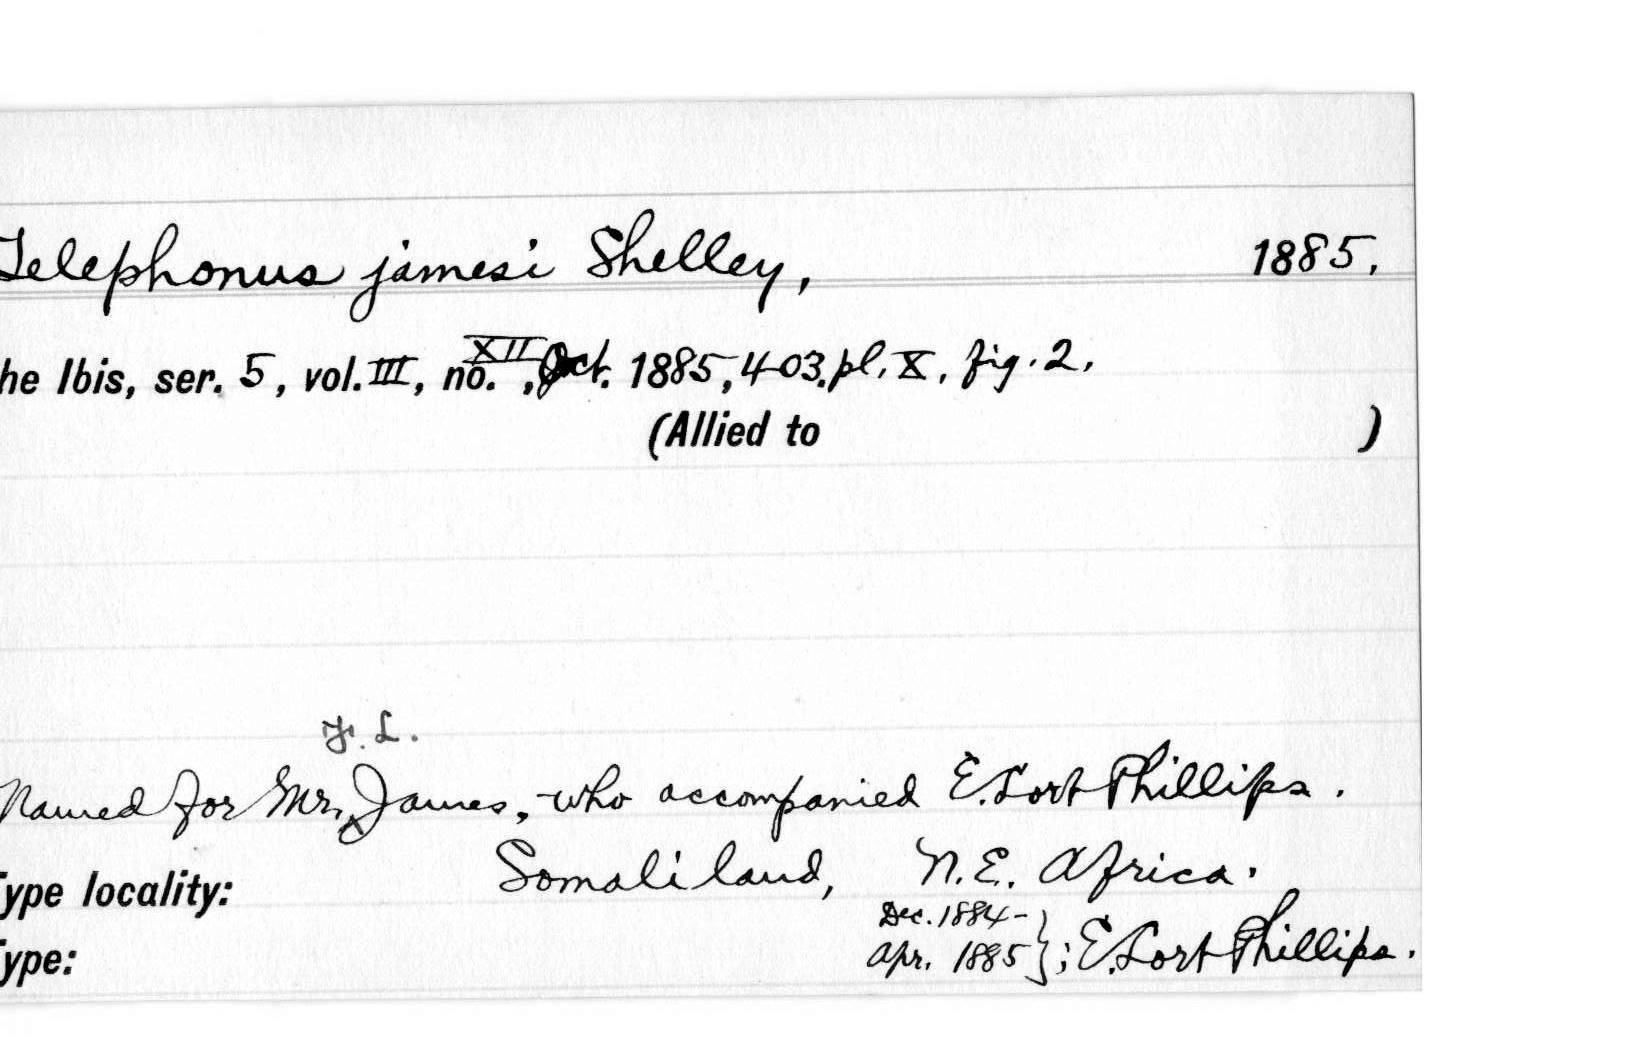 Telephonus jamesi Shelley, 1885.
he Ibis, ser. 5, vol. III, no. XII, Oct. 1885, 403. pl. X, fig. 2.
(Allied to )
F. L.
Named for Mr. James, who accompanied E. Lort Phillips.
Type locality: Somaliland, N.E. Africa.
Dec. 1884-
ype: Apr. 1885 } ; E. Lort Phillips.